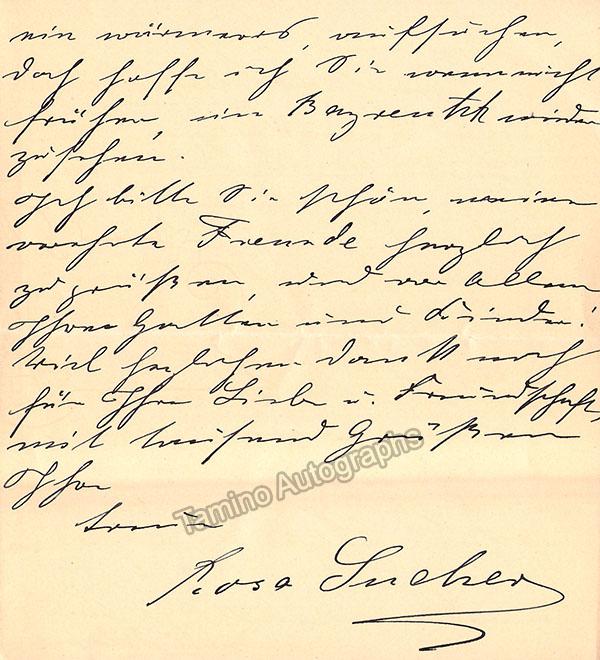 ein wärmeres, aufsuchen,
doch hoffe ich Sie wenn nicht
früher, in Bayreuth wieder
zusehen.
Ich bitte Sie schön, meine
verehrte Freunde herzlich
zu grüßen, und vor allem
Ihren Gatten und Kinder!
Viel herzlichen Dank noch
für Ihre Liebe u. Freundschaft,
mit tausend Grüßen
Ihre
treue
Rosa Sucher
Tamino Autographs